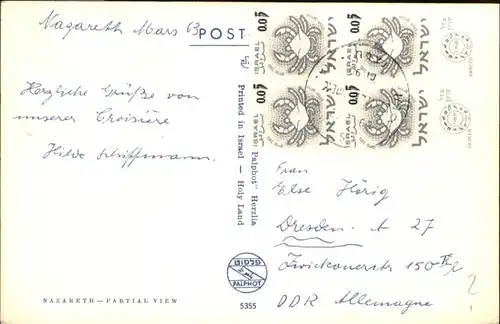 Nazareth Mars 63
POST
Herzliche Grüße von
unserer Croisière
Hilde Schiffmann.
Printed in Israel — Holy Land
"Palphot" Herzlia
0.05 ישראל
ISRAEL
0.05 ישראל
ISRAEL
0.05 ישראל
ISRAEL
0.05 ישראל
ISRAEL
Frau
Else Hörig
Dresden. A 27
Zwickauerstr 150
DDR Allemagne
פלפוט
PALPHOT
5355
NAZARETH—PARTIAL VIEW